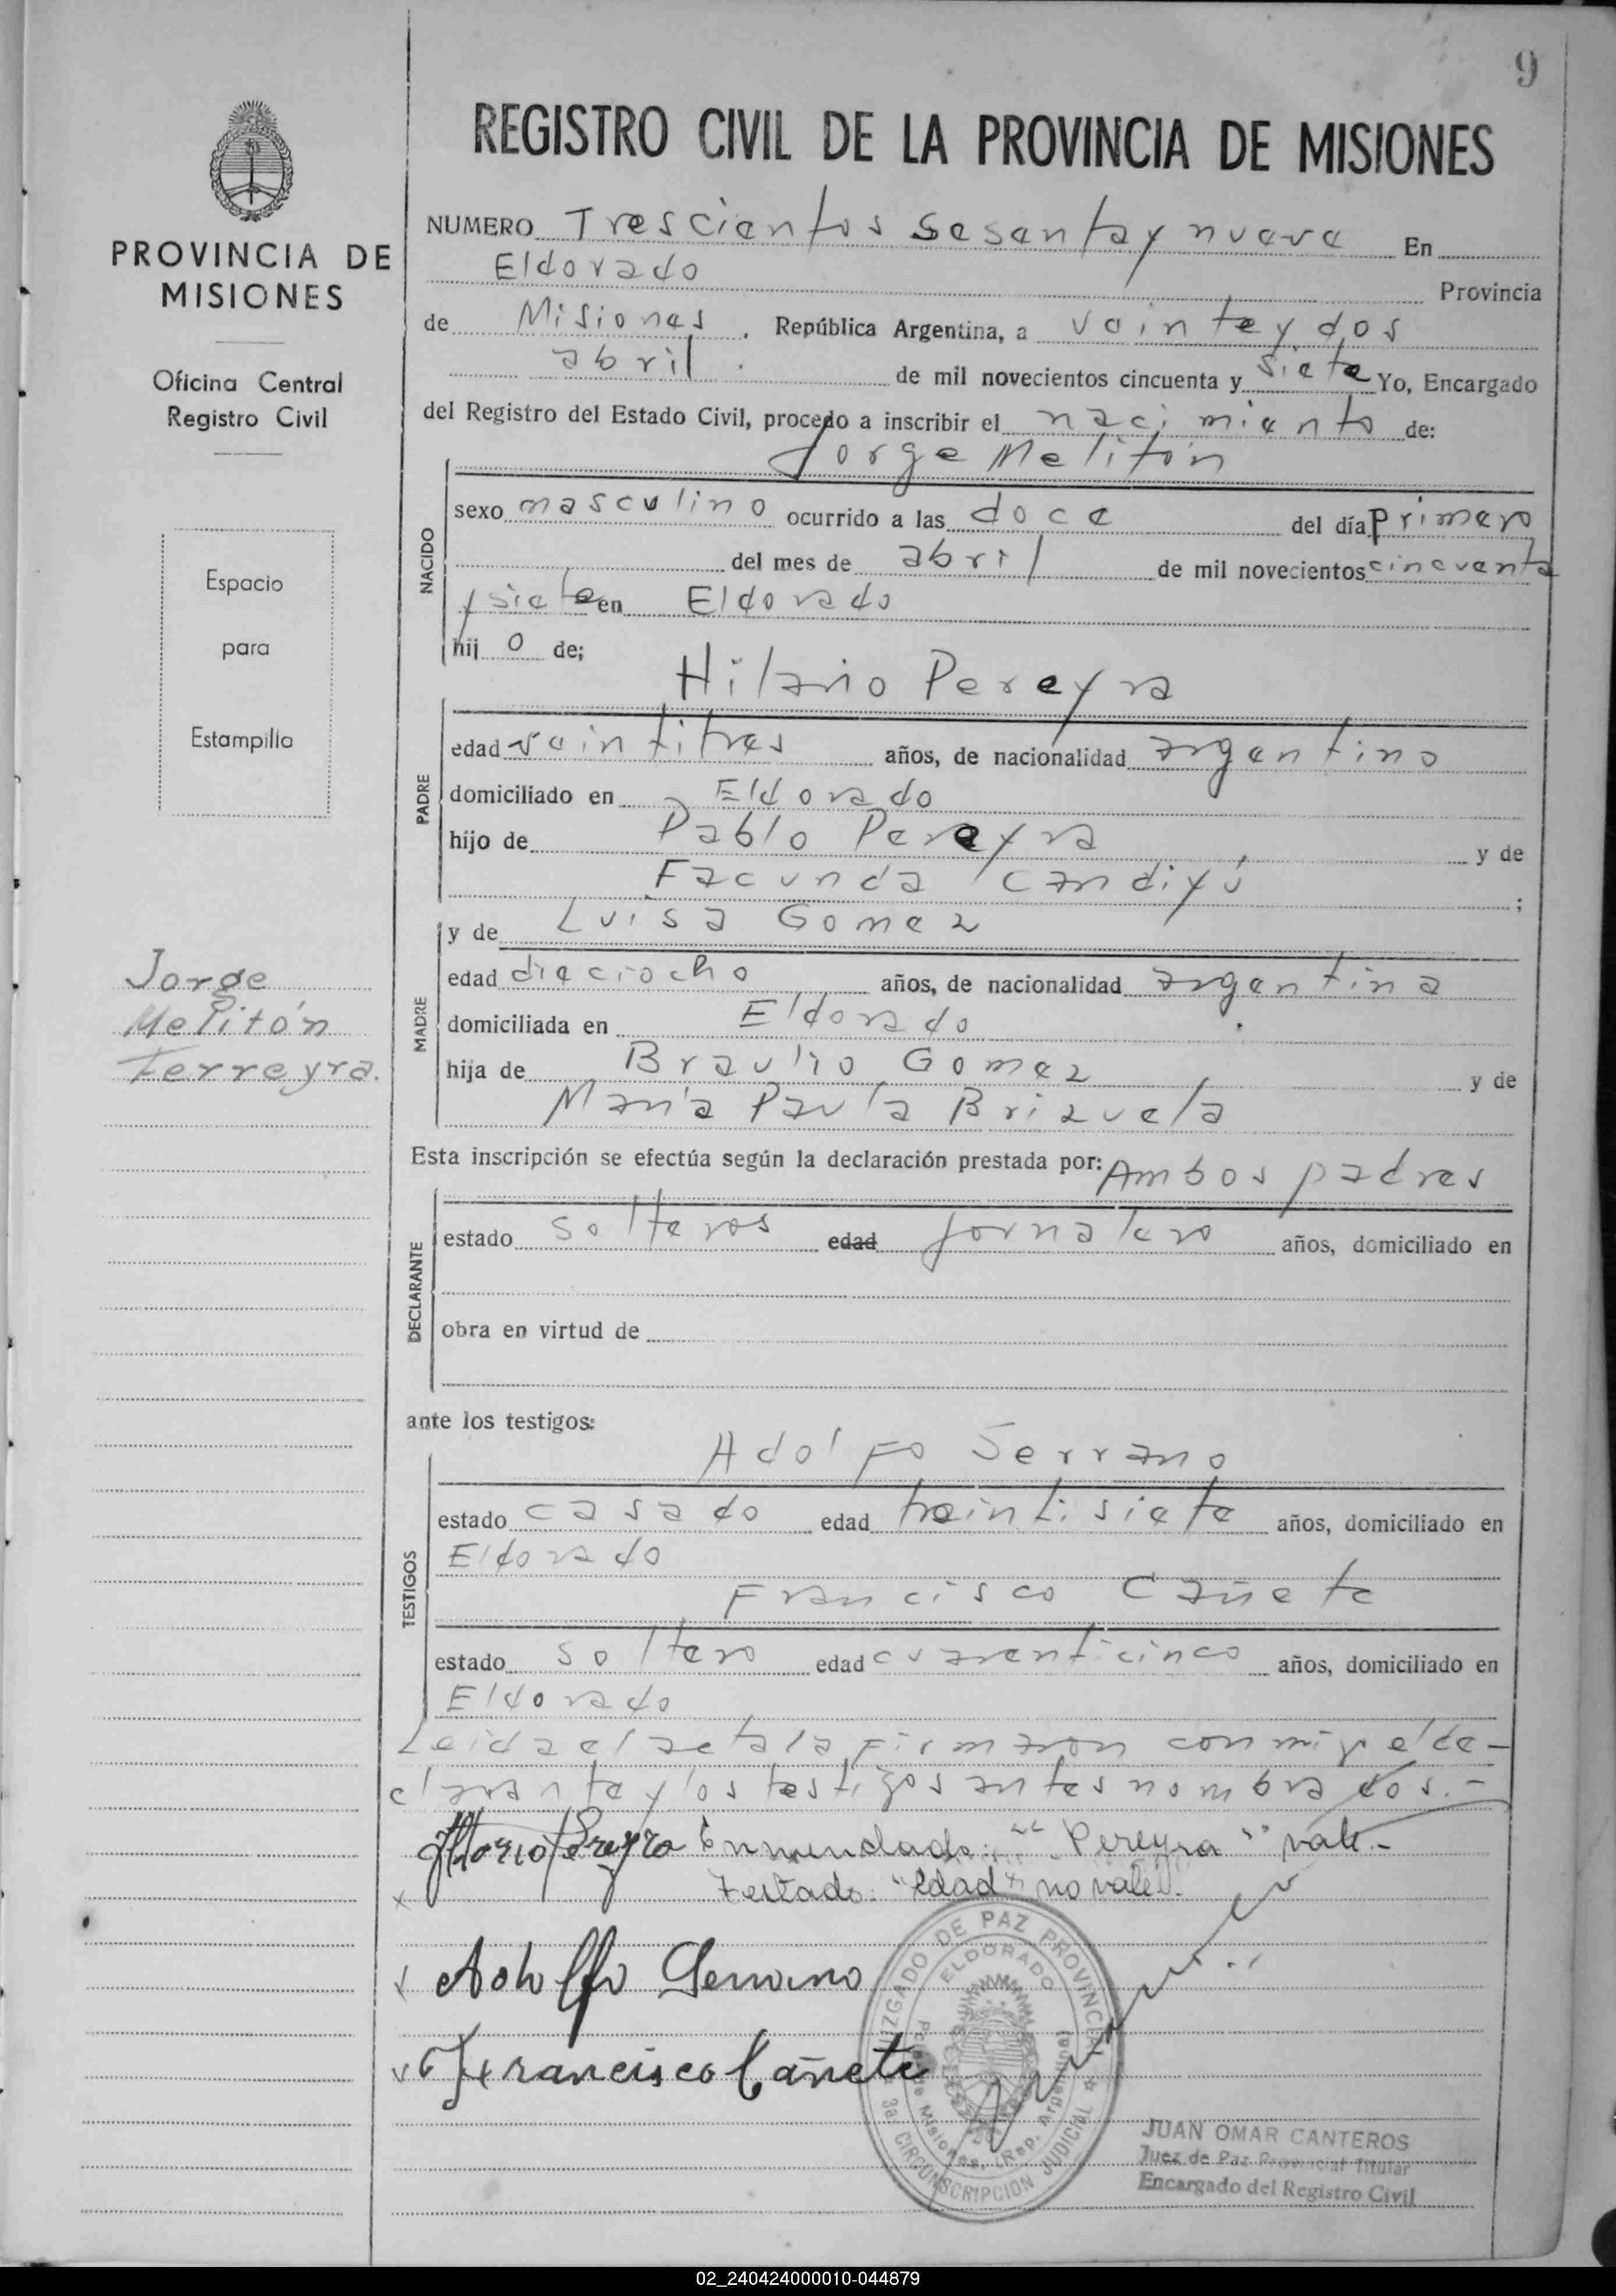 9
REGISTRO CIVIL DE LA PROVINCIA DE MISIONES
PROVINCIA DE
MISIONES
Oficina Central
Registro Civil
Espacio
para
Estampilla
Jorge
Melitón
Ferreyra.
NUMERO Trescientos sesenta y nueve En
Eldorado Provincia
de Misiones, República Argentina, a veinte y dos
abril de mil novecientos cincuenta y siete Yo, Encargado
del Registro del Estado Civil, procedo a inscribir el nacimiento de:
Jorge Melitón
NACIDO
sexo masculino ocurrido a las doce del día primero
del mes de abril de mil novecientos cincuenta
y siete en Eldorado
hij o de;
Hilario Pereyra
PADRE
edad veintitres años, de nacionalidad argentino
domiciliado en Eldorado
hijo de Pablo Pereyra y de
Facunda Candiyú ;
y de Luisa Gomez
MADRE
edad dieciocho años, de nacionalidad argentina
domiciliada en Eldorado
hija de Braulio Gomez y de
María Paula Brizuela
Esta inscripción se efectúa según la declaración prestada por: Ambos padres
DECLARANTE
estado solteros edad jornalero años, domiciliado en
obra en virtud de
ante los testigos:
Adolfo Serrano
TESTIGOS
estado casado edad treintisiete años, domiciliado en
Eldorado
Francisco Cañete
estado soltero edad cuarenticinco años, domiciliado en
Eldorado
Leida el acta la firmaron conmigo el de-
clarante y los testigos antes nombrados.-
Ilario Pereyra Enmendado: "Pereyra" vale-
x Testado: "edad" no vale.
Adolfo Serrano
Francisco Cañete
JUZGADO DE PAZ PROVINCIAL
ELDORADO
Pcia. de Misiones, (Rep. Argentina)
3a. CIRCUNSCRIPCION JUDICIAL
JUAN OMAR CANTEROS
Juez de Paz Provincial Titular
Encargado del Registro Civil
02_240424000010-044879